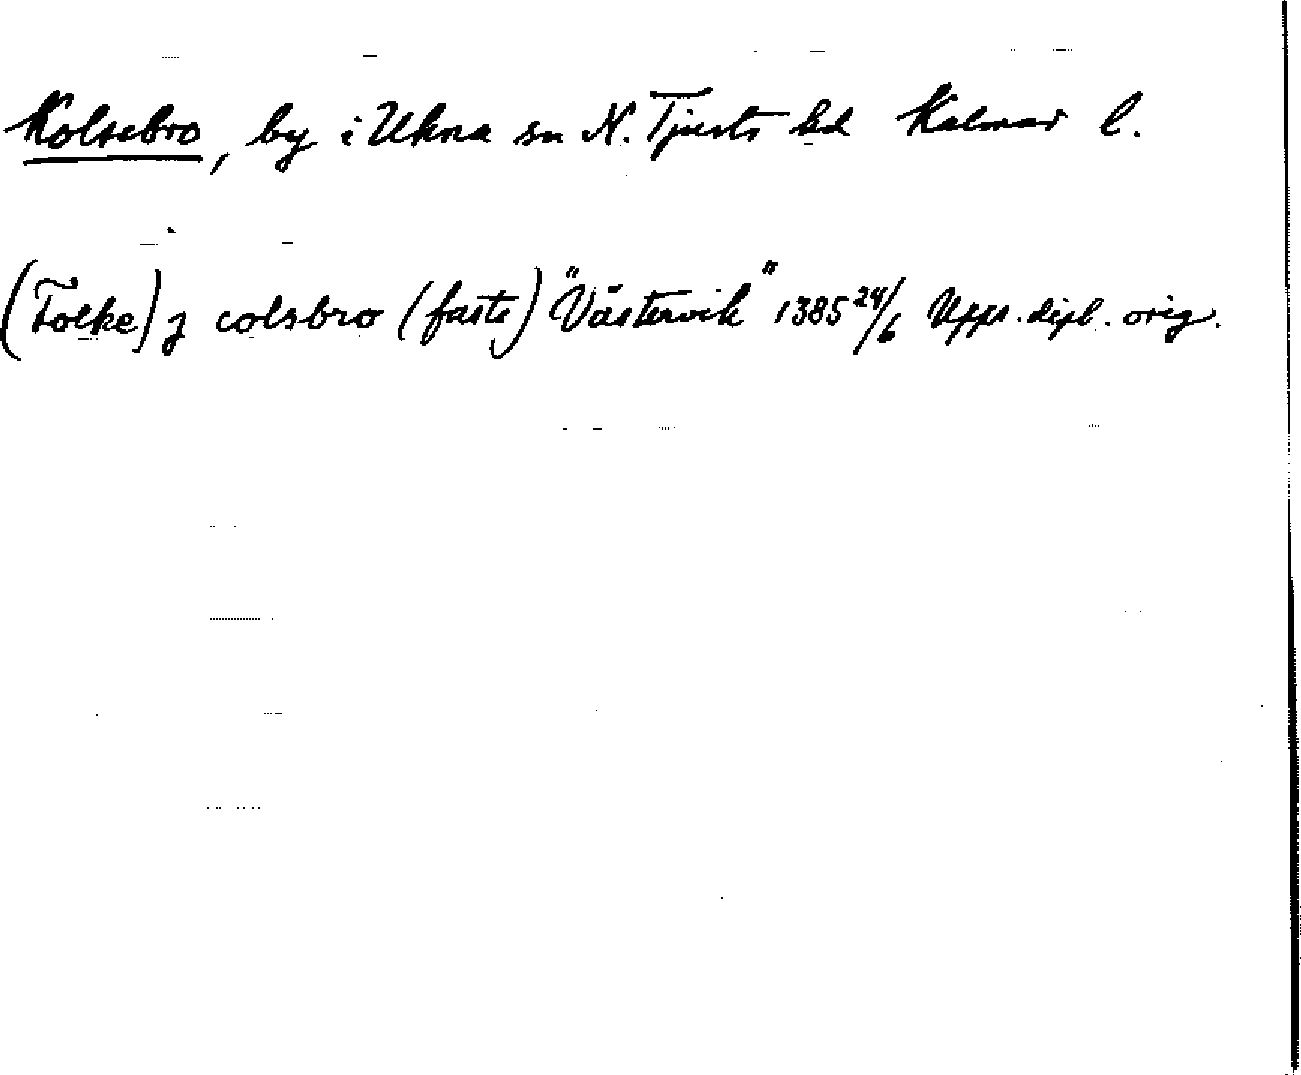 Kolsebro, by i Ukna sn N. Tjusts hd Kalmar l.
(Folke) j colsbro (faste) "Västervik" 1385 24/6 Upps. dipl. orig.